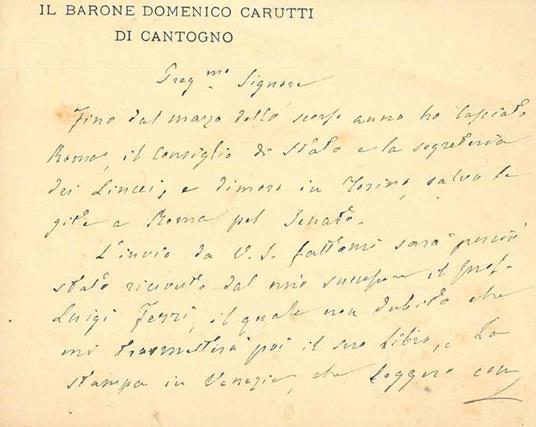 IL BARONE DOMENICO CARUTTI
DI CANTOGNO
Preg.mo Signore
Fino dal marzo dello scorso anno ho lasciato
Roma, il Consiglio di Stato e la segreteria
dei Lincei, e dimoro in Torino, salvo le
gite a Roma pel Senato.
L'invio da V. S. fattomi sarà perciò
stato ricevuto dal mio successore il Prof.
Luigi Ferri, il quale non dubito che
mi trasmetterà poi il suo libro, e la
stampa in Venezia, che leggerò con